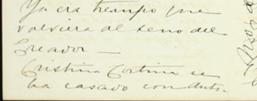 Ya era tiempo que
volviera al seno del
Creador —
Cristina Cortina se
ha casado con